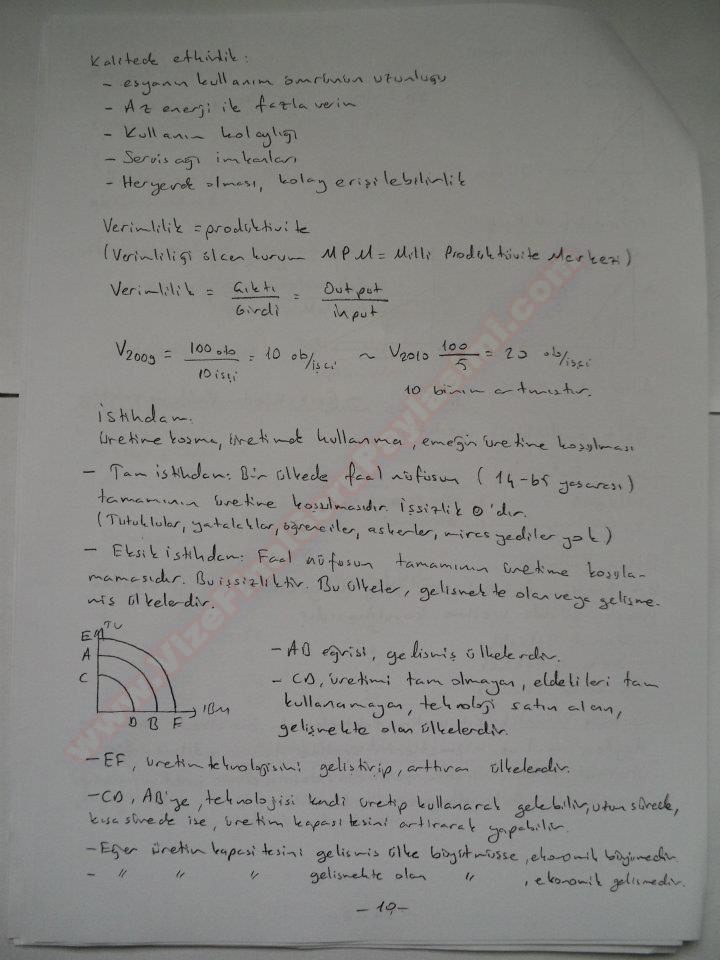 Kalitede etkinlik:
- eşyanın kullanım ömrünün uzunluğu
- Az enerji ile fazla verim
- Kullanım kolaylığı
- Servis ağı imkanları
- Heryerde olması, kolay erişilebilirlik
Verimlilik = prodüktivite
(Verimliliği ölçen kurum MPM = Milli Prodüktivite Merkezi)
Verimlilik = Çıktı/Girdi = Output/input
V2009 = 100 oto/10 işçi = 10 ob/işçi ~ V2010 100/5 = 20 ob/işçi
10 birim artmıştır.
İstihdam:
Üretime koşma, üretimde kullanma, emeğin üretime koşulması
- Tam istihdam: Bir ülkede faal nüfusun (14-65 yaş arası)
tamamının üretime koşulmasıdır. İşsizlik 0'dır.
(Tutuklular, yatalaklar, öğrenciler, askerler, miras yediler yok)
- Eksik istihdam: Faal nüfusun tamamının üretime koşula-
mamasıdır. Bu işsizliktir. Bu ülkeler, gelişmekte olan veya gelişme-
miş ülkelerdir.
E TU
A
C
D B F Bu
- AB eğrisi, gelişmiş ülkelerdir.
- CD, üretimi tam olmayan, eldelileri tam
kullanamayan, teknoloji satın alan,
gelişmekte olan ülkelerdir.
- EF, üretim teknolojisini geliştirip, arttıran ülkelerdir.
- CD, AB'ye, teknolojisi kendi üretip kullanarak gelebilir, uzun sürede,
kısa sürede ise, üretim kapasitesini artırarak yapabilir.
- Eğer üretim kapasitesini gelişmiş ülke büyütmüsse, ekonomik büyümedir.
- " " " gelişmekte olan " , ekonomik gelişmedir.
- 19 -
www.VizeFinalButePaylasimi.com